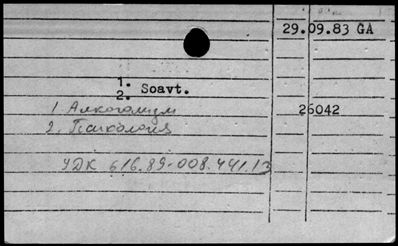 29.09.83 GA
1.
2. Soavt.
1 Алкоголизм
26042
2. Психология
УДК 616.89-008.441.13